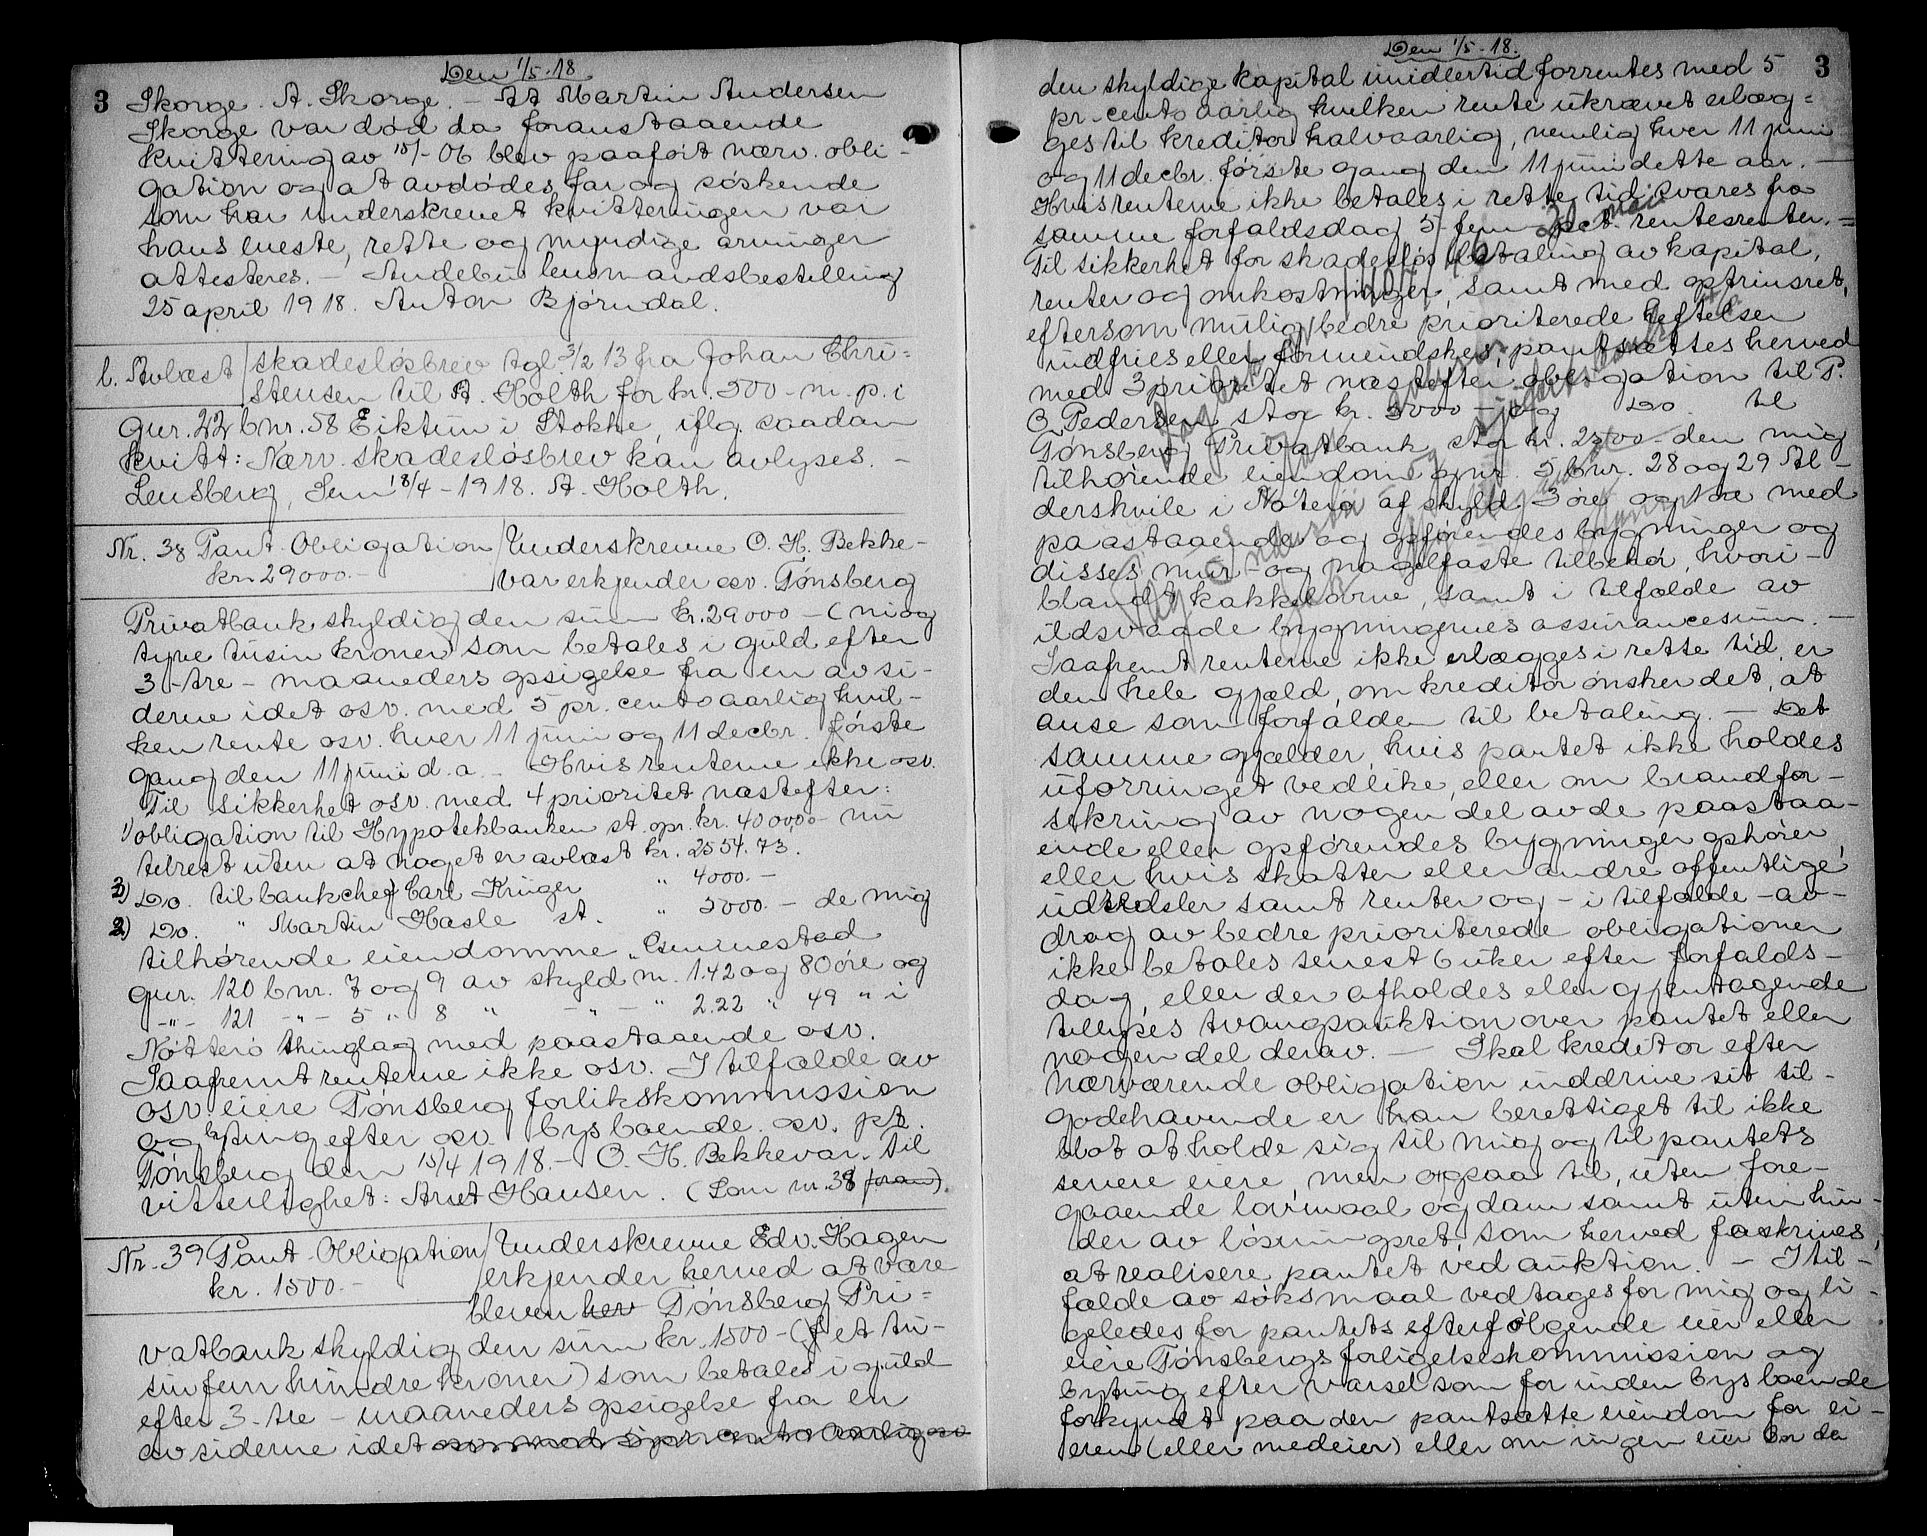 Den 1/5-18
3
Skorge. A. Skorge. - At Martin Andersen
Skorge var død da foranstaaende
kvittering av 15/- 06 blev paaført nærv. obli-
gation og at avdødes far og søskende
som har underskrevet kvitteringen var
hans neste, rette og myndige arvinger
attesteres. - Andebu lensmandsbestilling
25 april 1918. Anton Bjørndal.
l. Avlæst skadesløsbrev tgl. 3/2 13 fra Johan Chri-
stensen til A. Holth for kr. 500- m. p. i
gnr. 22 bnr. 58 Eiktun i Stokke, iflg. saadan
kvitt: Nærv. skadesløsbrev kan avlyses. -
Lensberg, Sem 18/4 - 1918. A. Holth.
Nr. 38 Pant. Obligation Underskrevne O. H. Bekke-
kr. 29000.- var erkjender osv. Tønsberg
Privatbank skyldig den sum kr. 29000 - (niog
tyve tusin kroner som betales i guld efter
3-tre- maaneders opsigelse fra en av si-
derne idet osv. med 5 pr. cento aarlig hvil-
ken rente osv. hver 11 juni og 11 decbr. første
gang den 11 juni d. a. - Hvis renterne ikke osv.
Til sikkerhet osv. med 4 prioritet næstefter:
1) obligation til Hypotekbanken st. opr. kr. 40000,- nu
tilrest uten at noget er avlæst kr. 2554.73.
3) Do. til bankchef Carl Krüger " 4000.-
2) Do. " Martin Hasle st. " 5000. - de mig
tilhørende eiendomme "Gunnestad
gnr. 120 bnr. 7 og 9 av skyld m. 1.42 og 80 øre og
-"- 121 -"- 5 " 8 " -"- " 2.22 " 49 " i
Nøtterø thinglag med paastaaende osv.
Saafremt renterne ikke osv. I tilfælde av
osv. eiere Tønsberg forlikskommission
og byting efter osv. bysboende osv. pt.
Tønsberg den 15/4 1918. - O. H. Bekkevar. Til
vitterlighet: Arnt Hansen. (Som nr. 38 foran).
Nr. 39 Pant. Obligation Underskrevne Edv. Hagen
kr. 1500.- erkjender herved at være
bleven her Tønsberg Pri-
vatbank skyldig den sum kr. 1500 - (et tu-
sin fem hundre kroner) som betales i guld
efter 3-tre - maaneders opsigelse fra en
av siderne idet osv. med 5 pr. cento aarlig osv
Den 1/5-18.
3
den skyldige kapital imidlertid forrentes med 5
pr. cento aarlig hvilken rente ukrævet erlæg-
ges til kreditor halvaarlig, nemlig hver 11 juni
og 11 decbr. første gang den 11 juni dette aar. -
Hvis renterne ikke betales i rette tid svares fra
samme forfaldsdag 5-fem- pct. rentesrenter. -
Til sikkerhet for skadesløs betaling av kapital,
renter og omkostninger, samt med optrinsret,
eftersom mulig bedre prioriterede heftelser
indfries eller formindskes, pantsættes herved
med 3 prioritet næstefter obligation til P.
O. Pedersen stor kr. 5000 - og Do. til
Tønsberg Privatbank stor kr. 2500 - den mig
tilhørende eiendom gnr. 5 bnr. 28 og 29 Al-
derskvile i Nøterø af skyld 3 øre og 1 øre med
paastaaende og opførendes bygninger og
disses mur- og nagelfaste tilbehør, hvori-
blandt kakkelovne, samt i tilfælde av
ildsvaade bygningernes assurancesum. -
Saafremt renterne ikke erlægges i rette tid, er
den hele gjæld, om kreditor ønsker det, at
anse som forfalden til betaling. - Det
samme gjælder, hvis pantet ikke holdes
uforringet vedlike, eller om brandfor-
sikring av nogen del av de paastaa-
ende eller opførendes bygninger ophører,
eller hvis skatter eller andre offentlige
utredsler samt renter og - i tilfælde - av-
drag av bedre prioriterede obligationer
ikke betales senest 6 uker efter forfalds-
dag, eller der afholdes eller gjentagende
tillyses tvangsauktion over pantet eller
nogen del derav. - Skal kreditor efter
nærværende obligation inddrive sit til-
godehavende er han berettiget til ikke
blot at holde sig til mig og til pantets
senere eiere, men ogsaa til, uten fore-
gaaende lovmaal og dom samt uten hin-
der av løsningsret, som herved faskrives,
at realisere pantet ved auktion. - I til-
fælde av søksmaal vedtages for mig og li-
geledes for pantets efterfølgende eier eller
eiere Tønsbergs forligelseskommission og
byting efter varsel som for inden bys boende
forkyndt paa den pantsatte eiendom for ei-
eren (eller medeier) eller om ingen eier bor da